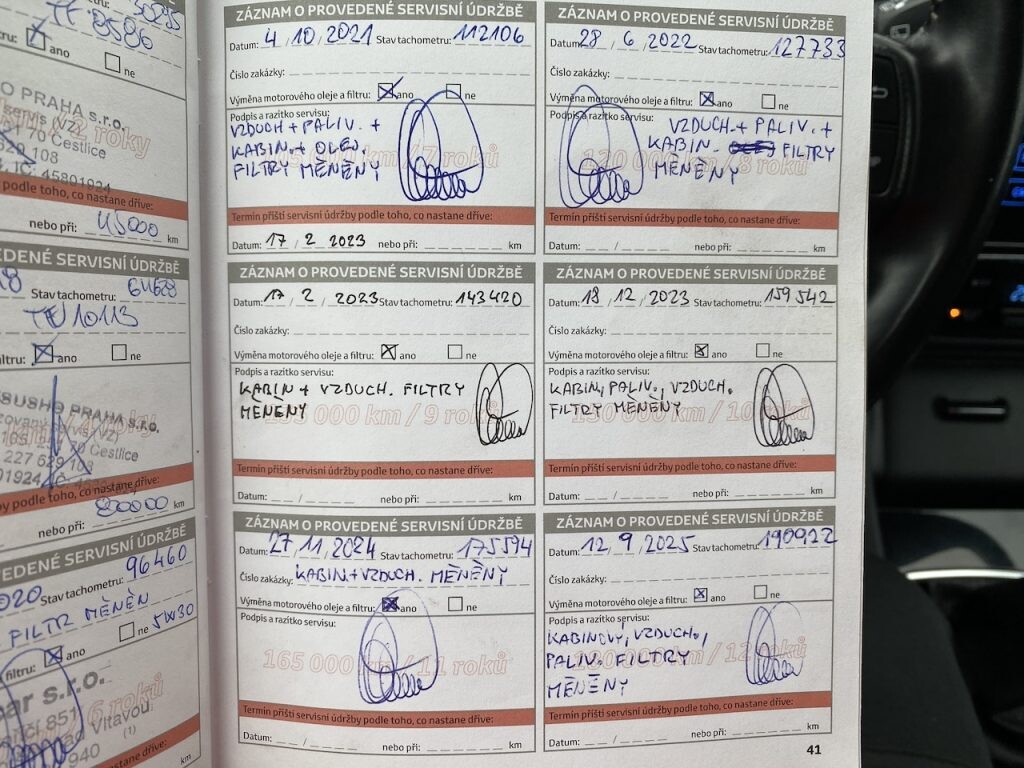 30295
TF 8586
ano
ne
O PRAHA s.r.o.
70 Čestlice
629 108
IČ: 45801924
podle toho, co nastane dříve:
nebo při: 45000 km
EDENÉ SERVISNÍ ÚDRŽBĚ
Stav tachometru: 64628
TU 10113
filtru: ano
ne
SUSHO PRAHA s.r.o.
Čestlice
227 629 108
by podle toho, co nastane dříve:
nebo při: 80000 km
VEDENÉ SERVISNÍ ÚDRŽBĚ
020 Stav tachometru: 96460
FILTR MĚNĚN
ne 5W30
filtru: ano
par s.r.o.
851
nad Vltavou
940
(1)
toho, co nastane dříve:
km
ZÁZNAM O PROVEDENÉ SERVISNÍ ÚDRŽBĚ
Datum: 4 / 10 / 2021 Stav tachometru: 112106
Číslo zakázky:
Výměna motorového oleje a filtru: ano ne
Podpis a razítko servisu:
VZDUCH + PALIV. +
KABIN. + OLEJ.
FILTRY MĚNĚNY
km / 7 roků
Termín příští servisní údržby podle toho, co nastane dříve:
Datum: 17 / 2 2023 nebo při: km
ZÁZNAM O PROVEDENÉ SERVISNÍ ÚDRŽBĚ
Datum: 28 / 6 / 2022 Stav tachometru: 127733
Číslo zakázky:
Výměna motorového oleje a filtru: ano ne
Podpis a razítko servisu:
VZDUCH. + PALIV. +
KABIN. FILTRY
MĚNĚNY
120 000 km / 8 roků
Termín příští servisní údržby podle toho, co nastane dříve:
Datum: / nebo při: km
ZÁZNAM O PROVEDENÉ SERVISNÍ ÚDRŽBĚ
Datum: 17 / 2 / 2023 Stav tachometru: 143420
Číslo zakázky:
Výměna motorového oleje a filtru: ano ne
Podpis a razítko servisu:
KABIN + VZDUCH. FILTRY
MĚNĚNY
135 000 km / 9 roků
Termín příští servisní údržby podle toho, co nastane dříve:
Datum: / nebo při: km
ZÁZNAM O PROVEDENÉ SERVISNÍ ÚDRŽBĚ
Datum: 18 / 12 / 2023 Stav tachometru: 159542
Číslo zakázky:
Výměna motorového oleje a filtru: ano ne
Podpis a razítko servisu:
KABIN, PALIV., VZDUCH.
FILTRY MĚNĚNY
150 000 km / 10 roků
Termín příští servisní údržby podle toho, co nastane dříve:
Datum: / nebo při: km
ZÁZNAM O PROVEDENÉ SERVISNÍ ÚDRŽBĚ
Datum: 27 / 11 / 2024 Stav tachometru: 175594
Číslo zakázky: KABIN + VZDUCH. MĚNĚNY
Výměna motorového oleje a filtru: ano ne
Podpis a razítko servisu:
165 000 km / 11 roků
Termín příští servisní údržby podle toho, co nastane dříve:
Datum: / nebo při: km
ZÁZNAM O PROVEDENÉ SERVISNÍ ÚDRŽBĚ
Datum: 12 / 9 / 2025 Stav tachometru: 190922
Číslo zakázky:
Výměna motorového oleje a filtru: ano ne
Podpis a razítko servisu:
KABINOVÝ, VZDUCH.,
PALIV. FILTRY
MĚNĚNY
000 km / 12 roků
Termín příští servisní údržby podle toho, co nastane dříve:
Datum: / nebo při: km
41